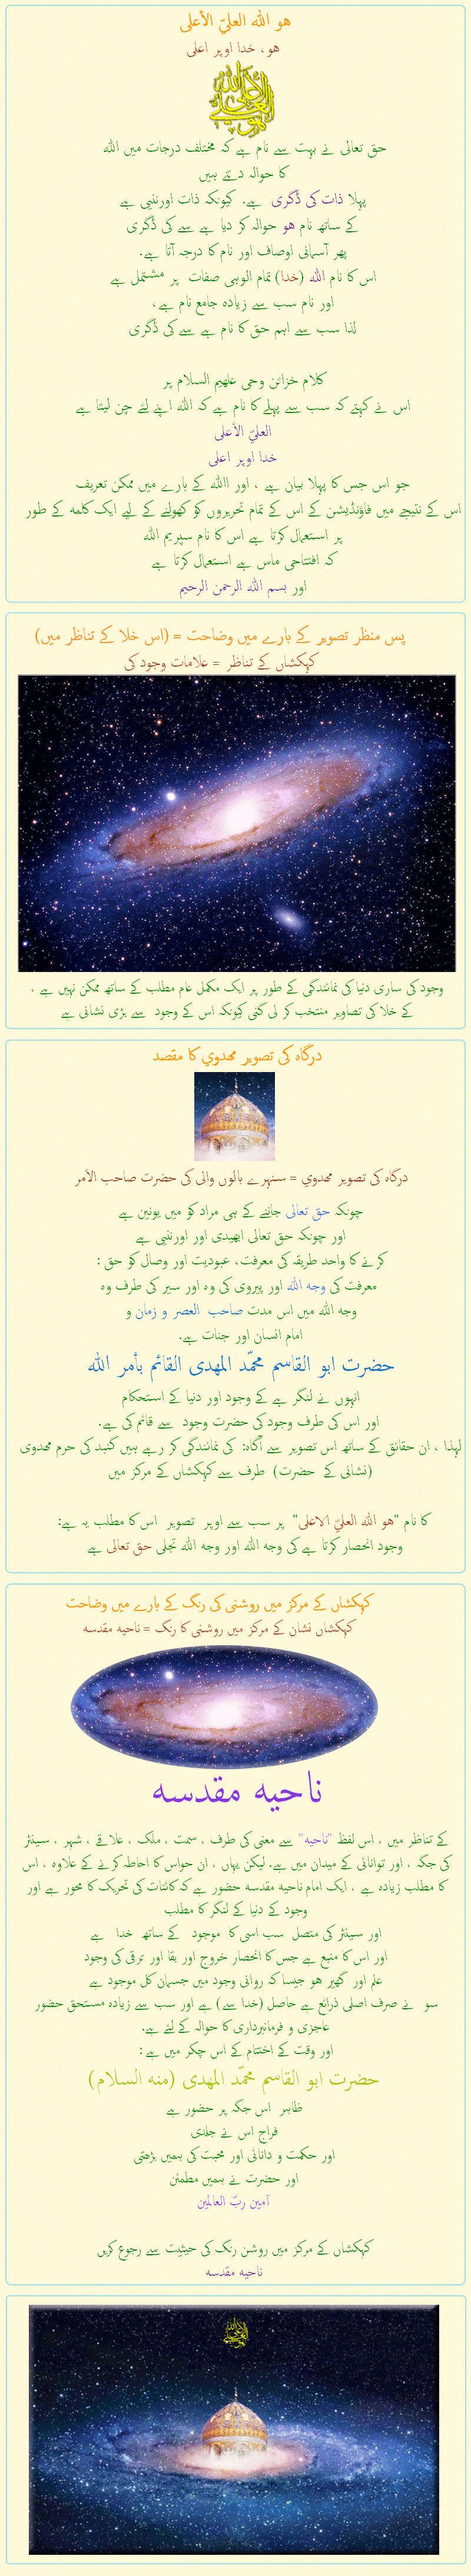 هو الله العليّ الأعلى
هو، خدا اوپر اعلی
هو الله العليّ الأعلى
حق تعالی نے بہت سے نام ہے کہ مختلف درجات میں اللہ
کا حوالہ دیتے ہیں
پہلا ذات کی ڈگری ہے. کیونکہ ذات اورنبی ہے
کے ساتھ نام هو حوالہ کر دیا ہے سے کی ڈگری
پھر آسمانی اوصاف اور نام کا درجہ آتا ہے.
اس کا نام اللہ (خدا) تمام الوہی صفات پر مشتمل ہے
اور نام سب سے زیادہ جامع نام ہے،
لہذا سب سے اہم حق کا نام ہے سے کی ڈگری
کلام خزائن وحی علھیم السلام پر
اس نے کہتے کہ سب سے پہلے کا نام ہے کہ اللہ اپنے لئے چن لیتا ہے
العليّ الأعلى
خدا اوپر اعلی
جو اس جس کا پہلا بیان ہے ، اور االلہ کے بارے میں ممکن تعریف
اس کے نتیجے میں فاؤنڈیشن کے اس کے تمام تحریروں کو کھولنے کے لیے ایک کلمہ کے طور
پر استعمال کرتا ہے اس کا نام سپریم اللہ
کہ افتتاحی ماس ہے استعمال کرتا ہے
اور بسم اللہ الرحمن الرحیم
پس منظر تصویر کے بارے میں وضاحت = (اس خلا کے تناظر میں)
کہکشاں کے تناظر = علامات وجود کی
وجود کی ساری دنیا کی نمائندگی کے طور پر ایک مکمل عام مطلب کے ساتھ ممکن نہیں ہے ،
کے خلا کی تصاویر منتخب کر لی گئی کیونکہ اس کے وجود سے بڑی نشانی ہے
درگاہ کی تصویر مهدوي کا مقصد
درگاہ کی تصویر مهدوي = سنہرے بالوں والی کی حضرت صاحب الأمر
چونکہ حق تعالی جاننے کے ہی مراد کو میں یونین ہے
اور چونکہ حق تعالی ابھیدی اور اورنبی ہے
کرنے کا واحد طریقہ کی معرفت، عبودیت اور وصال کو حق :
معرفت کی وجہ اللہ اور پیروی کی وہ اور سیر کی طرف وہ
وجہ اللہ میں اس مدت صاحب العصر و زمان و
امام انسان اور جنات ہے.
حضرت ابو القاسم محمّد المهدی القائم بأمر الله
انہوں نے لنگر ہے کے وجود اور دنیا کے استحکام
اور اس کی طرف وجود کی حضرت وجود سے قائم کی ہے.
لہذا ، ان حقائق کے ساتھ اس تصویر سے آگاہ: کی نمائندگی کر رہے ہیں گنبد کی حرم مهدوی
(نشانی کے حضرت) طرف سے کہکشاں کے مرکز میں
کا نام "هو الله العليّ الاعلى" پر سب سے اوپر تصویر اس کا مطلب یہ ہے:
وجود انحصار کرتا ہے کی وجہ اللہ اور وجہ اللہ تجلی حق تعالی ہے
کہکشاں کے مرکز میں روشنی کی رنگ کے بارے میں وضاحت
کہکشاں نشان کے مرکز میں روشنی کا رنگ = ناحیه مقدسه
ناحیه مقدسه
کے تناظر میں ، اس لفظ "ناحیه" سے معنی کی طرف ، سمت ، ملک ، علاقے ، شہر ، سینٹر
کی جگہ ، اور توانائی کے میدان میں ہے. لیکن یہاں ، ان حواس کا احاطہ کرنے کے علاوہ ، اس
کا مطلب زیادہ ہے ، ایک امام ناحیه مقدسه حضور ہے کہ کائنات کی تحریک کا محور ہے اور
وجود کے دنیا کے لنگر کا مطلب
اور سینٹر کی متصل سب اسی کا موجود کے ساتھ خدا ہے
اور اس کا منبع ہے جس کا انحصار خروج اور بقا اور ترقی کی وجود
علم اور گھیر ہو جیسا کہ روانی وجود میں جسمان کل موجود ہے
سو نے صرف اصلی ذرائع ہے حاصل (خدا سے) ہے اور سب سے زیادہ مستحق حضور
عاجزی و فرمانبرداری کا حوالہ کے لئے ہے.
اور وقت کے اختتام کے اس چکر میں ہے :
حضرت ابو القاسم محمّد المهدی (منه السلام)
ظاہر اس جگہ پر حضور ہے
فراج اس نے جلدی
اور حکمت و دانائی اور محبت کی ہمیں بڑھتی
اور حضرت نے ہمیں مطمئن
آمین ربّ العالمین
کہکشاں کے مرکز میں روشن رنگ کی حیثیت سے رجوع کریں
ناحیه مقدسه